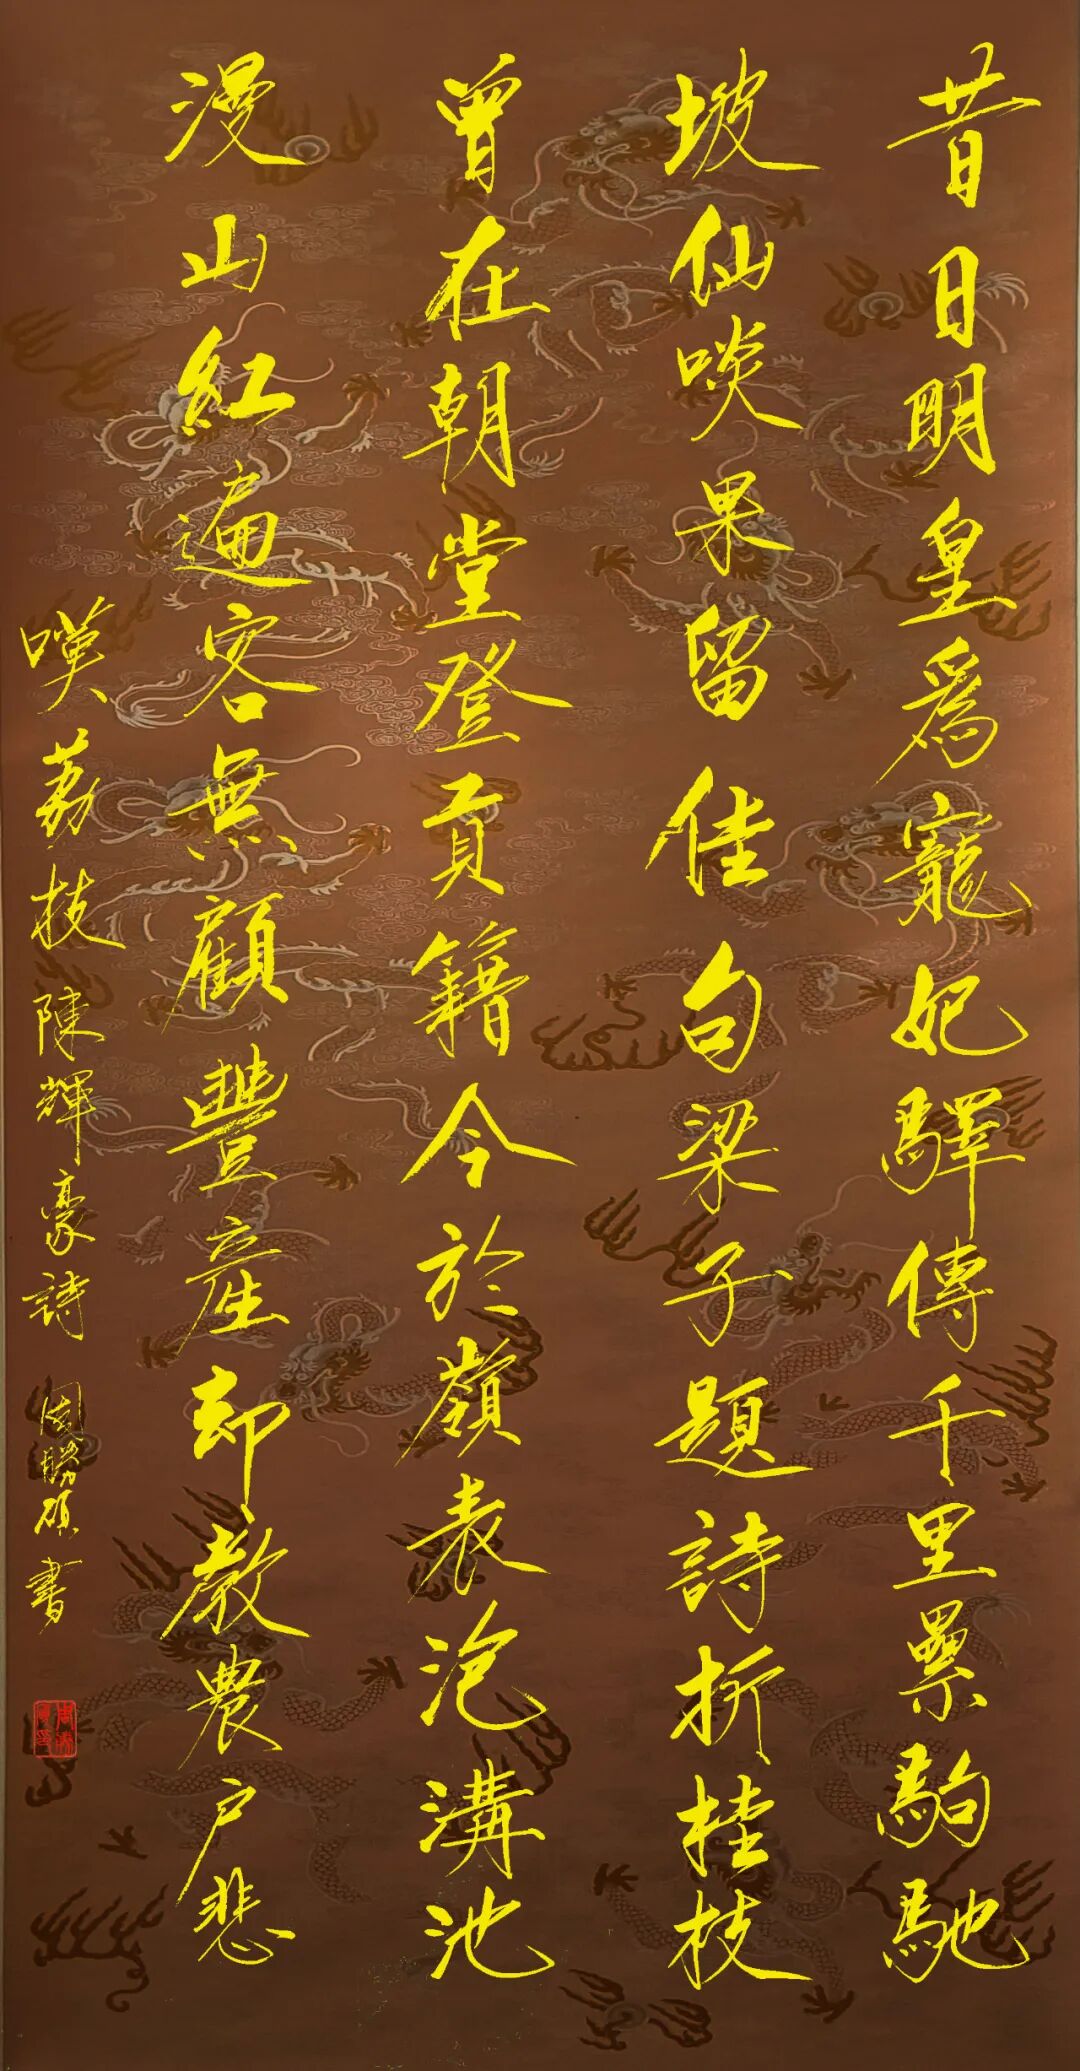 昔日明皇爲寵妃驛傳千里累駒馳
坡仙啖果留佳句梁子題詩折桂枝
曾在朝堂登貢籍今於嶺表泡溝池
漫山紅遍客無顧豐產却教農户悲
嘆荔枝 陳輝豪詩 周勝碩書